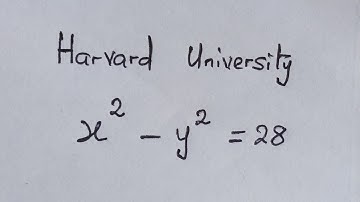 Harvard University
x² - y² = 28